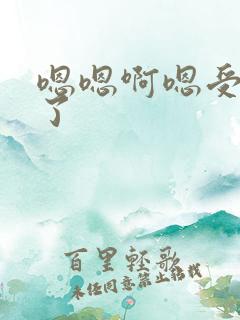 嗯嗯啊嗯受
了
百里轻歌
未经同意禁止转载